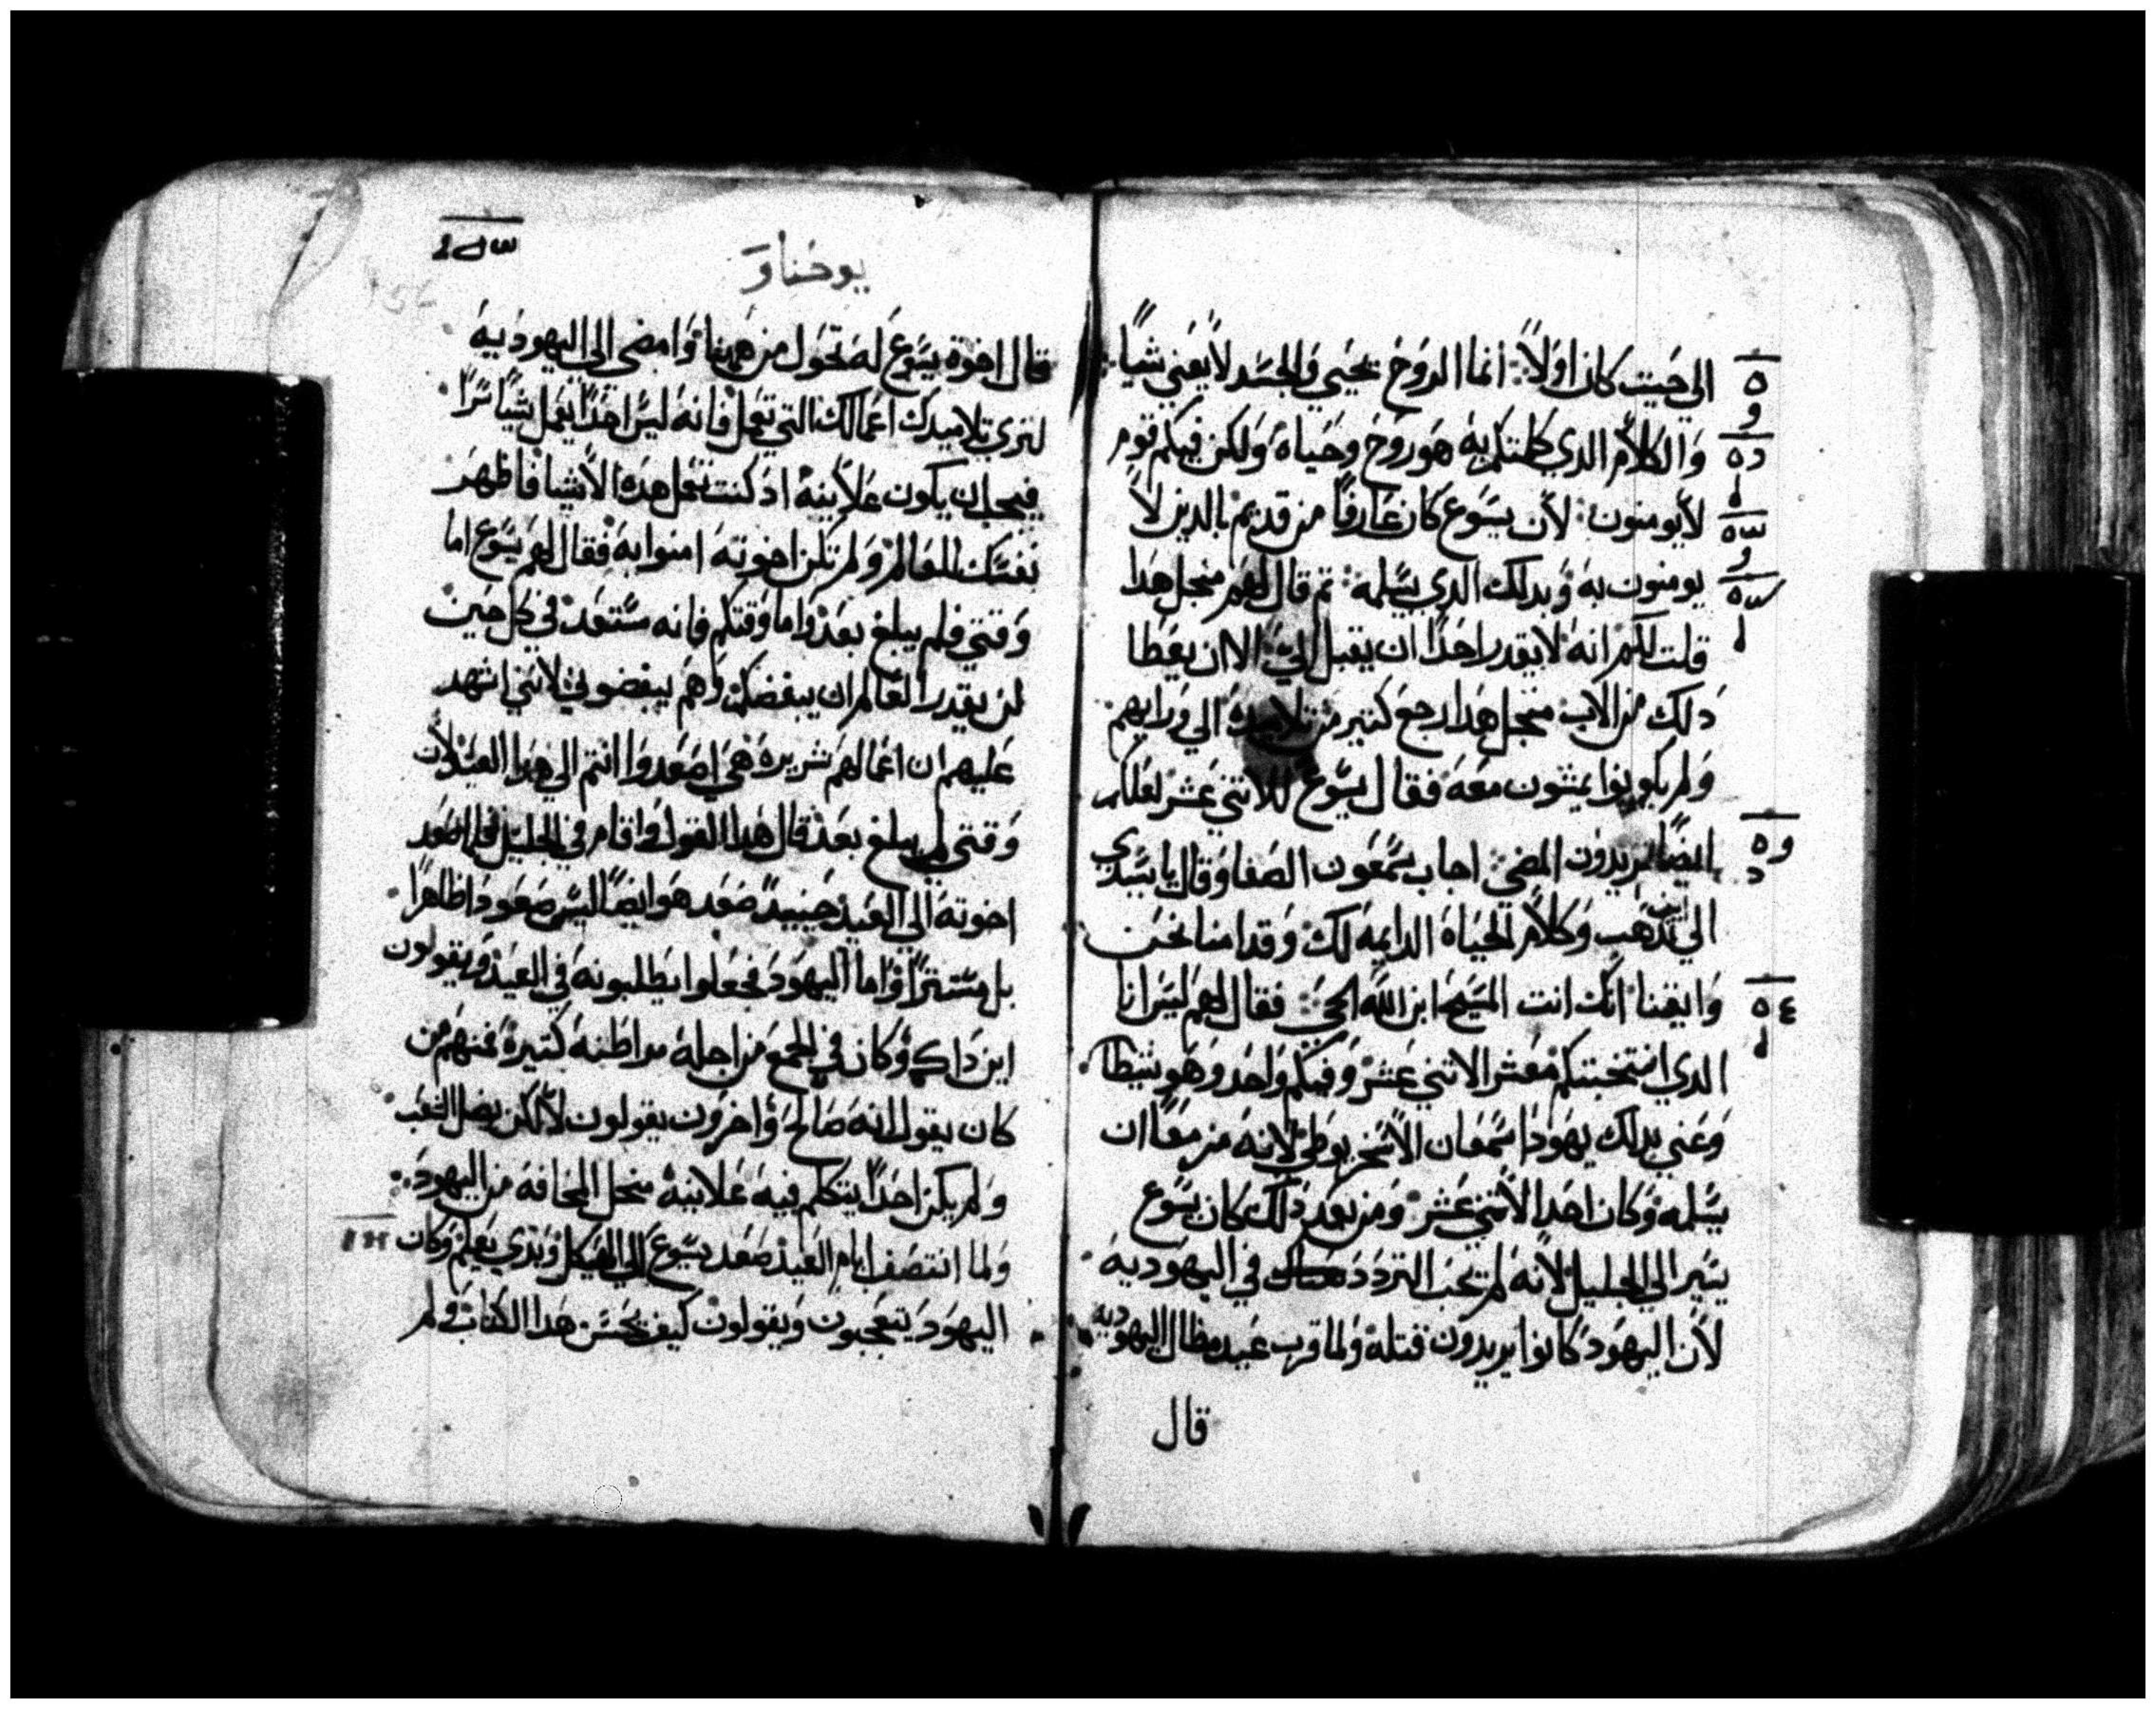 الي حيت كان اولاً انما الروح يحيي والجسد لا يغني شياً
والكلام الدي كلمتكم به هو روح وحياة ولكن فيكم قوم
لا يومنون لان يسوع كان عارفاً من قديم بالدين لا
يومنون به وبدلك الدي يسلمه تم قال لهم منجل هدا
قلت لكم انه لا يقدر احداً ان يقبل الي الا ان يعطا
دلك من الاب منجل هدا رجع كتير من تلاميده الي ورايهم
ولم يكونوا يمشون معه فقال يسوع للاتني عشر لعلكم
ايضاً تريدون المضي اجاب سمعون الصفا وقال يا سيدي
الي اين ندهب وكلام الحياة الدايمه لك وقد امنا نحن
وايقنا انك انت المسيح ابن الله الحي فقال لهم ليس انا
الدي انتخبتكم معشر الاتني عشر وفيكم واحد وهو شيطان
وعني بدلك يهودا سمعان الاسخريوطي لانه من معاً ان
يسلمه وكان احد الاتني عشر ومن بعد دلك كان يسوع
يسير الي الجليل لانه لم يحب التردد في اليهوديه
لان اليهود كانوا يريدون قتله ولما قرب عيد مظال اليهوديه
قال
يوحنا و
قال اخوة يسوع له تحول من ههنا وامضى الى اليهوديه
لنري تلاميدك اعمالك التي تعمل فانه ليس احداً يعمل شياً سراً
فيجب ان يكون علانيه اد كنت تعمل هده الاشيا فاظهر
نفسك للعالم ولم تكن اخوته امنوا به فقال لهم يسوع اما
وقتي فلم يبلغ بعد واما وقتكم فانه مستعد في كل حين
لن يقدر العالم ان يبغضكم وهم يبغضوني لانني اشهد
عليهم ان اعمالهم شريره هي اصعدوا انتم الي هدا العيد لان
وقتي لم يبلغ بعد قال هدا القول واقام في الجليل فلما صعد
اخوته الي العيد حينيد صعد هو ايضاً ليس صعودا ظاهراً
بل مستتراً واما اليهود فجعلوا يطلبونه في العيد ويقولون
اين داك وكان في الجمع من اجله مراطنه كتيرة فمنهم من
كان يقول انه صالح واخرون يقولون لا لكن يضل الشعب
ولم يكن احداً يتكلم فيه علانيه منجل المخافه من اليهود
ولما انتصف ايام العيد صعد يسوع الي الهيكل وبدي يعلم وكان
اليهود يتعجبون ويقولون كيف يحسن هدا الكتاب ولم